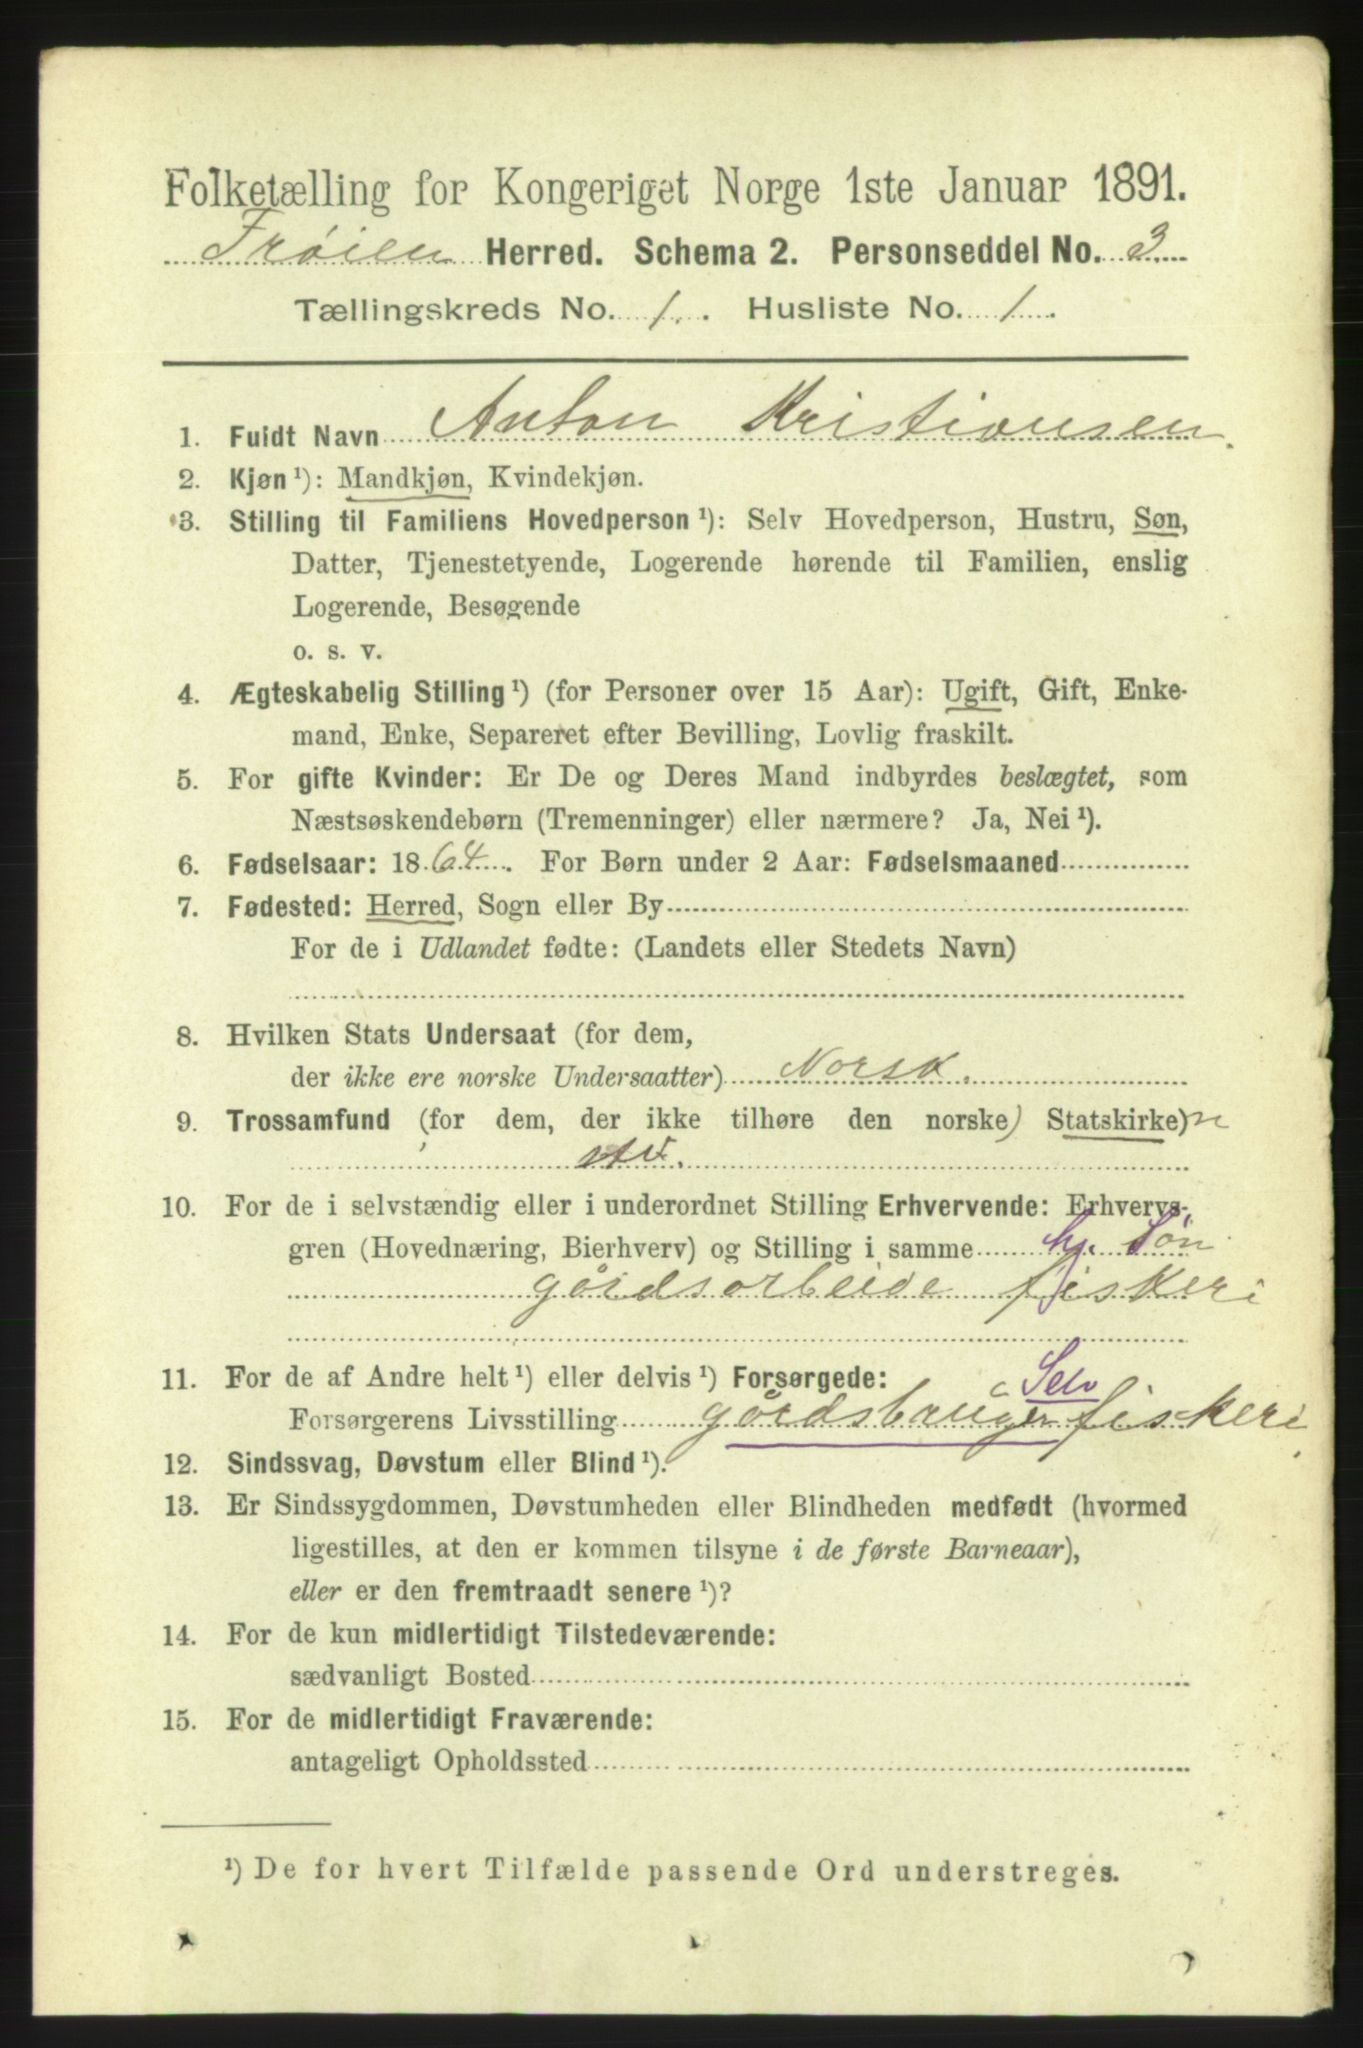 Folketælling for Kongeriget Norge 1ste Januar 1891.
Frøien Herred. Schema 2. Personseddel No. 3
Tællingskreds No. 1. Husliste No. 1.
1. Fuldt Navn Anton Kristiansen.
2. Kjøn ¹): Mandkjøn, Kvindekjøn.
3. Stilling til Familiens Hovedperson ¹): Selv Hovedperson, Hustru, Søn,
Datter, Tjenestetyende, Logerende hørende til Familien, enslig
Logerende, Besøgende
o. s. v.
4. Ægteskabelig Stilling ¹) (for Personer over 15 Aar): Ugift, Gift, Enke-
mand, Enke, Separeret efter Bevilling, Lovlig fraskilt.
5. For gifte Kvinder: Er De og Deres Mand indbyrdes beslægtet, som
Næstsøskendebørn (Tremenninger) eller nærmere? Ja, Nei ¹).
6. Fødselsaar: 1864. For Børn under 2 Aar: Fødselsmaaned
7. Fødested: Herred, Sogn eller By
For de i Udlandet fødte: (Landets eller Stedets Navn)
8. Hvilken Stats Undersaat (for dem,
der ikke ere norske Undersaatter) Norsk.
9. Trossamfund (for dem, der ikke tilhøre den norske) Statskirke)n
10. For de i selvstændig eller i underordnet Stilling Erhvervende: Erhvervs-
gren (Hovednæring, Bierhverv) og Stilling i samme hj. Søn
gårdsarbeide fiskeri
11. For de af Andre helt ¹) eller delvis ¹) Forsørgede: Selv
Forsørgerens Livsstilling fiskeri
12. Sindssvag, Døvstum eller Blind ¹).
13. Er Sindssygdommen, Døvstumheden eller Blindheden medfødt (hvormed
ligestilles, at den er kommen tilsyne i de første Barneaar),
eller er den fremtraadt senere ¹)?
14. For de kun midlertidigt Tilstedeværende:
sædvanligt Bosted
15. For de midlertidigt Fraværende:
antageligt Opholdssted
¹) De for hvert Tilfælde passende Ord understreges.